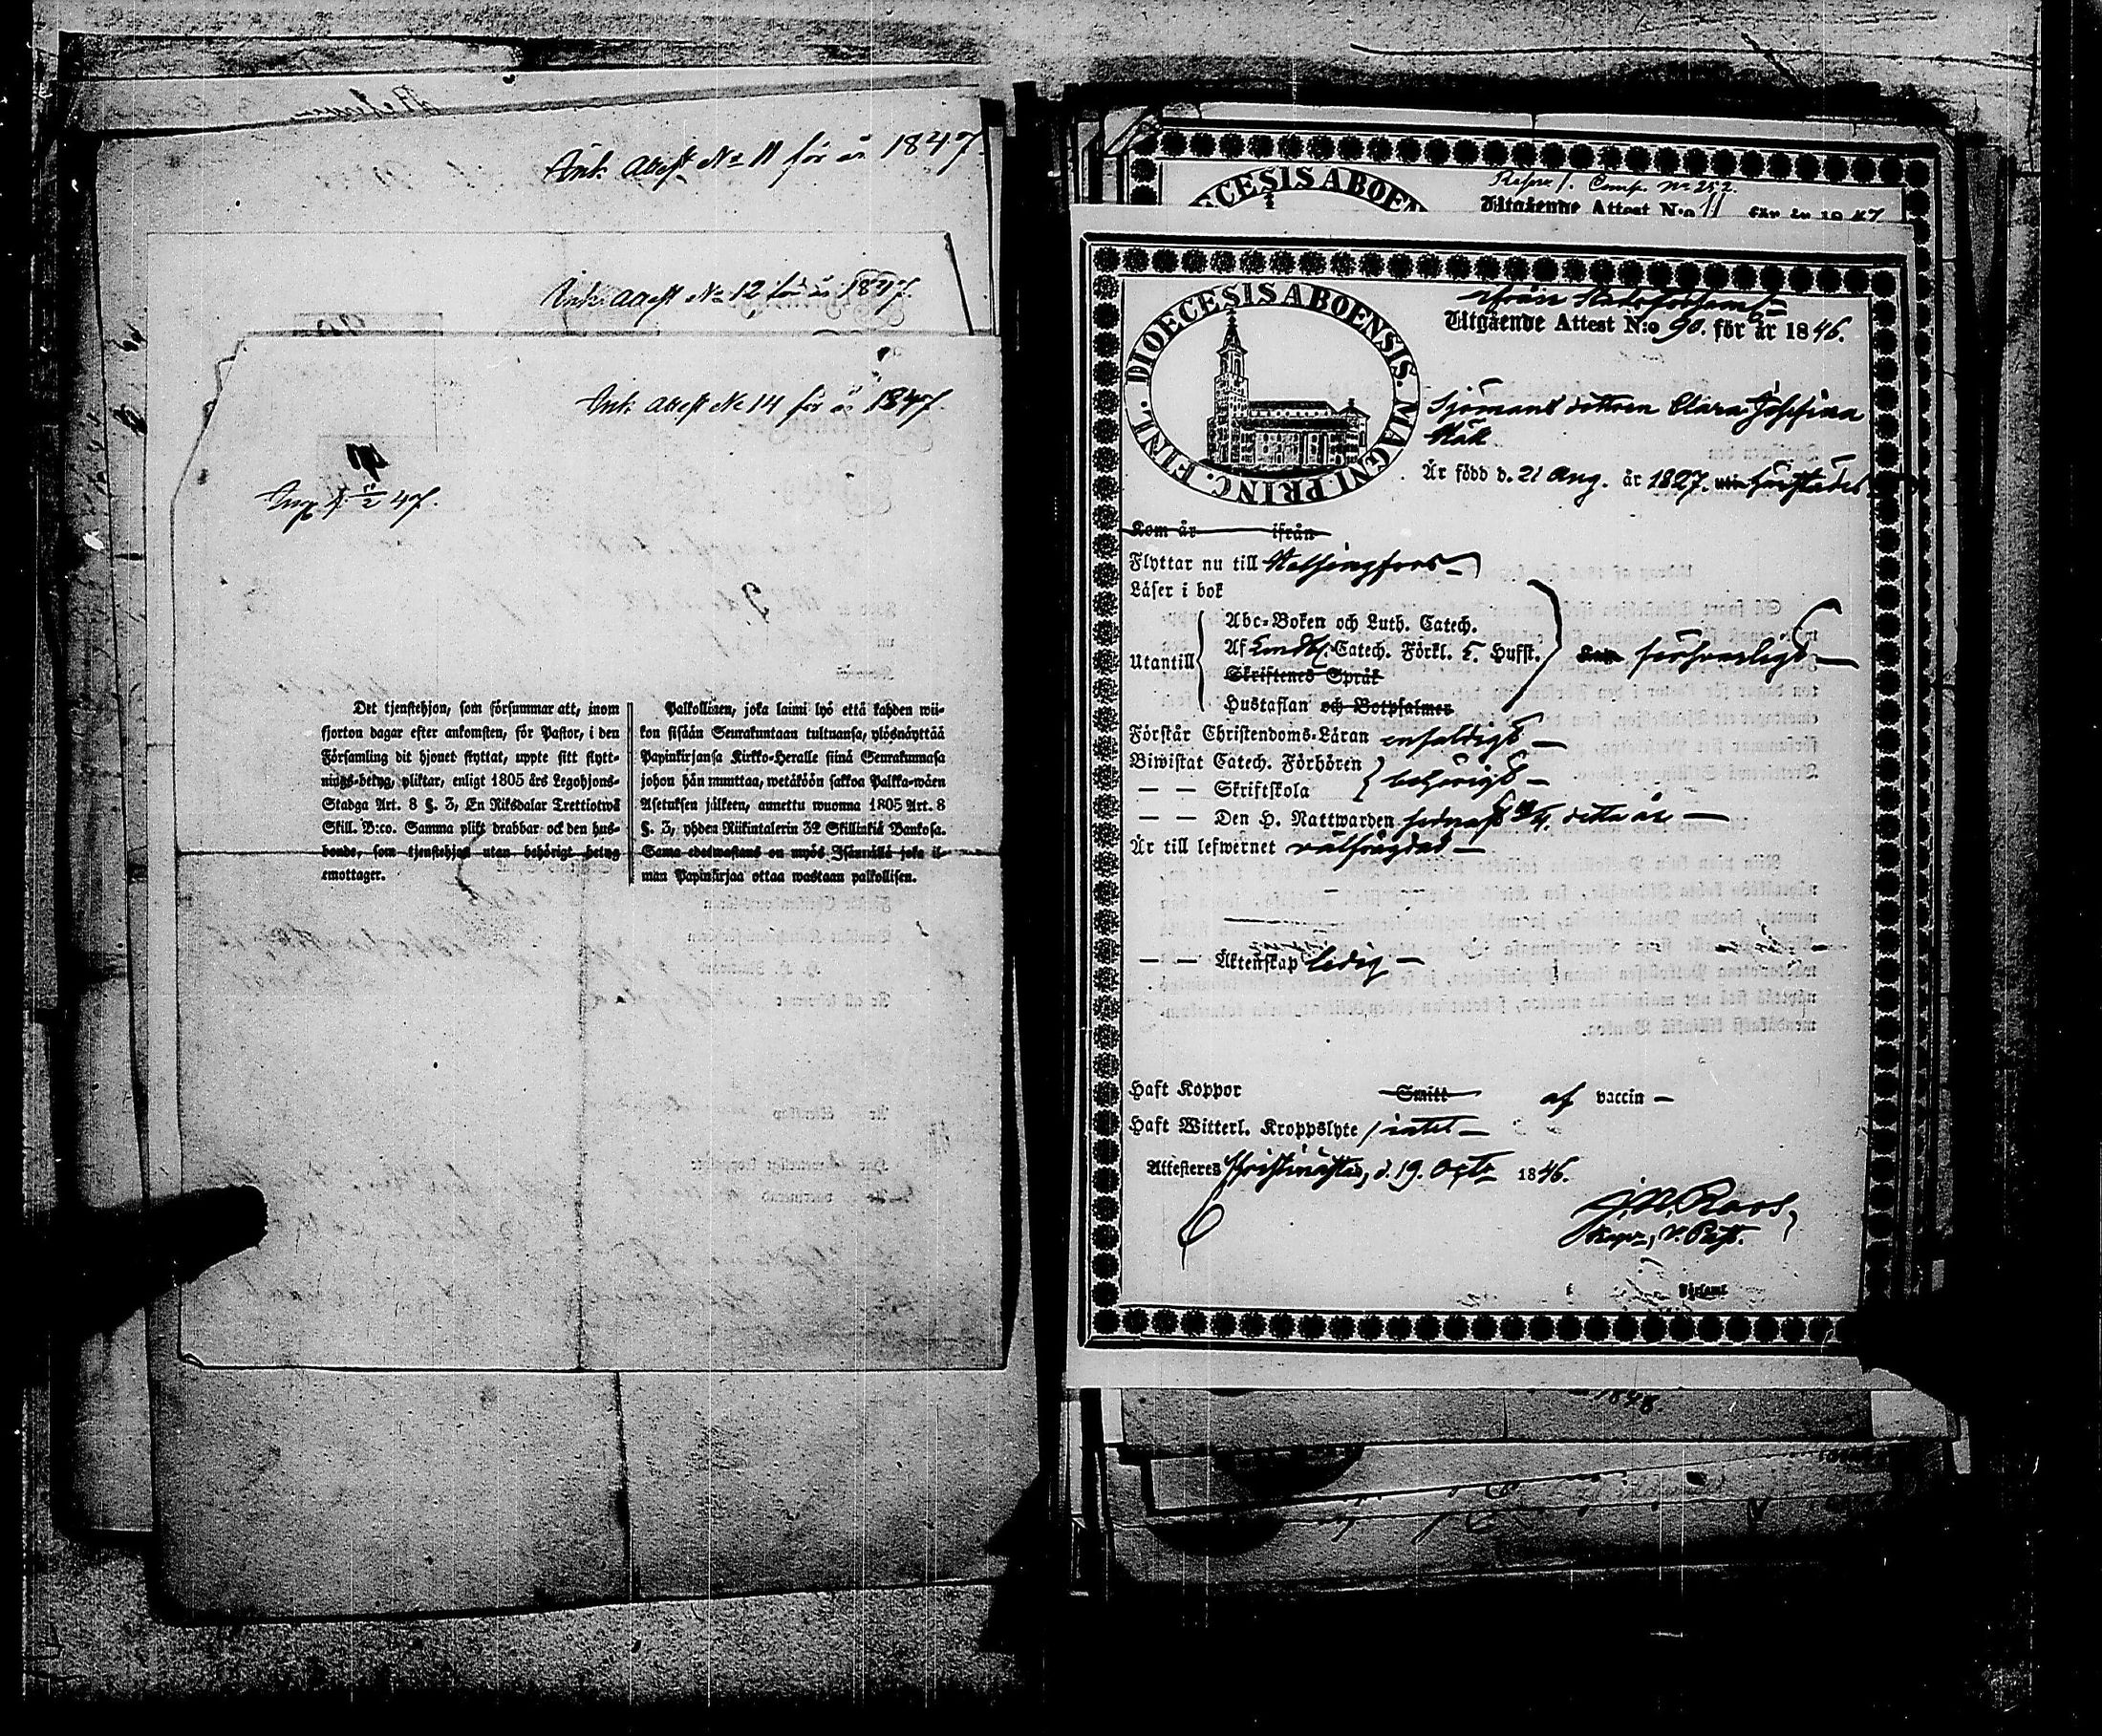 Ank: Attest No 11 för år 1847.
Ank: Attest No 12 för år 1847.
Ank: Attest No 14 för år 1847.
47.
Det tjenstehjon, som försummar att, inom
fjorton dagar efter ankomsten, för Pastor, i den
Församling dit hjonet flyttat, uppte sitt flytt-
nings-betyg, pliktar, enligt 1805 års Legohjons-
Stadga Art. 8 §. 3, En Riksdalar Trettiotwå
Skill. B:co. Samma plikt drabbar ock den hus-
bonde, som tjenstehjon utan behörigt betyg
emottager.
Palkollisen, joka laimi lyö että kahden wii-
kon sisään Seurakuntaan tultuansa, ylösnäyttää
Papinkirjansa Kirkko-Heralle siinä Seurakunnasa
johon hän muuttaa, wetäköön sakkoa Palkka-wäen
Asetuksen jälkeen, annettu wuonna 1805 Art. 8
§. 3, yhden Riikintalerin 32 Skillinkiä Bankosa.
Sama edeswastaus on myös Isännällä joka il-
man Papinkirjaa ottaa wastaan palkollisen.
DIOECESIS ABOEN
Comp. No 252.
Utgående Attest N:o 11 för år 1847
DIOECESIS ABOENSIS. MAGNI PRINC. FINL.
ifrån Stadsförsaml.
Utgående Attest N:o 90. för år 1846.
Sjömans dottren Clara Josefina
Är född d. 21 Aug. år 1827. härstädes
Kom år ifrån
Flyttar nu till Helsingfors
Läser i bok
Utantill
Abc-Boken och Luth. Catech.
Af Catech. Förkl. Hufst.
Skriftenes Språk
Hustaflan och Botpsalmer
försvarligt
Förstår Christendoms-Läran enfaldigt
Biwistat Catech. Förhören
— — Skriftskola
behörigt
— — Den H. Nattwarden sednast detta år
Är till lefwernet välfrägdad
— — Äktenskap ledig
Haft Koppor Smitt af vaccin
Haft Witterl. Kroppslyte intet
Attesteras Christinestad, d. 19. Octr 1846.
J. N. Roos,
Församl
1848.